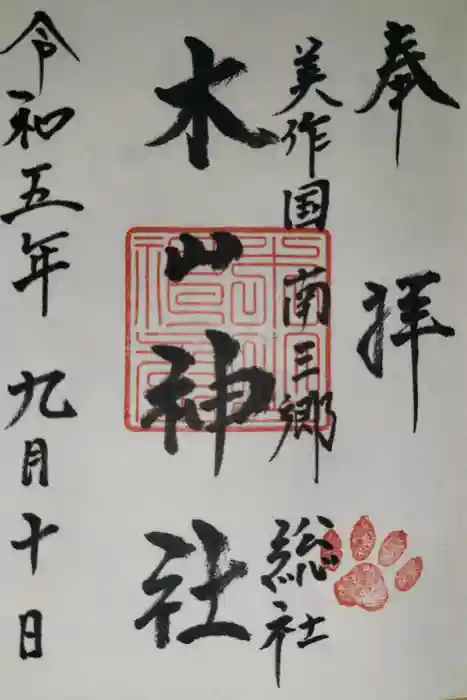 奉拝
美作国南三郷総社
木山神社
令和五年九月十日